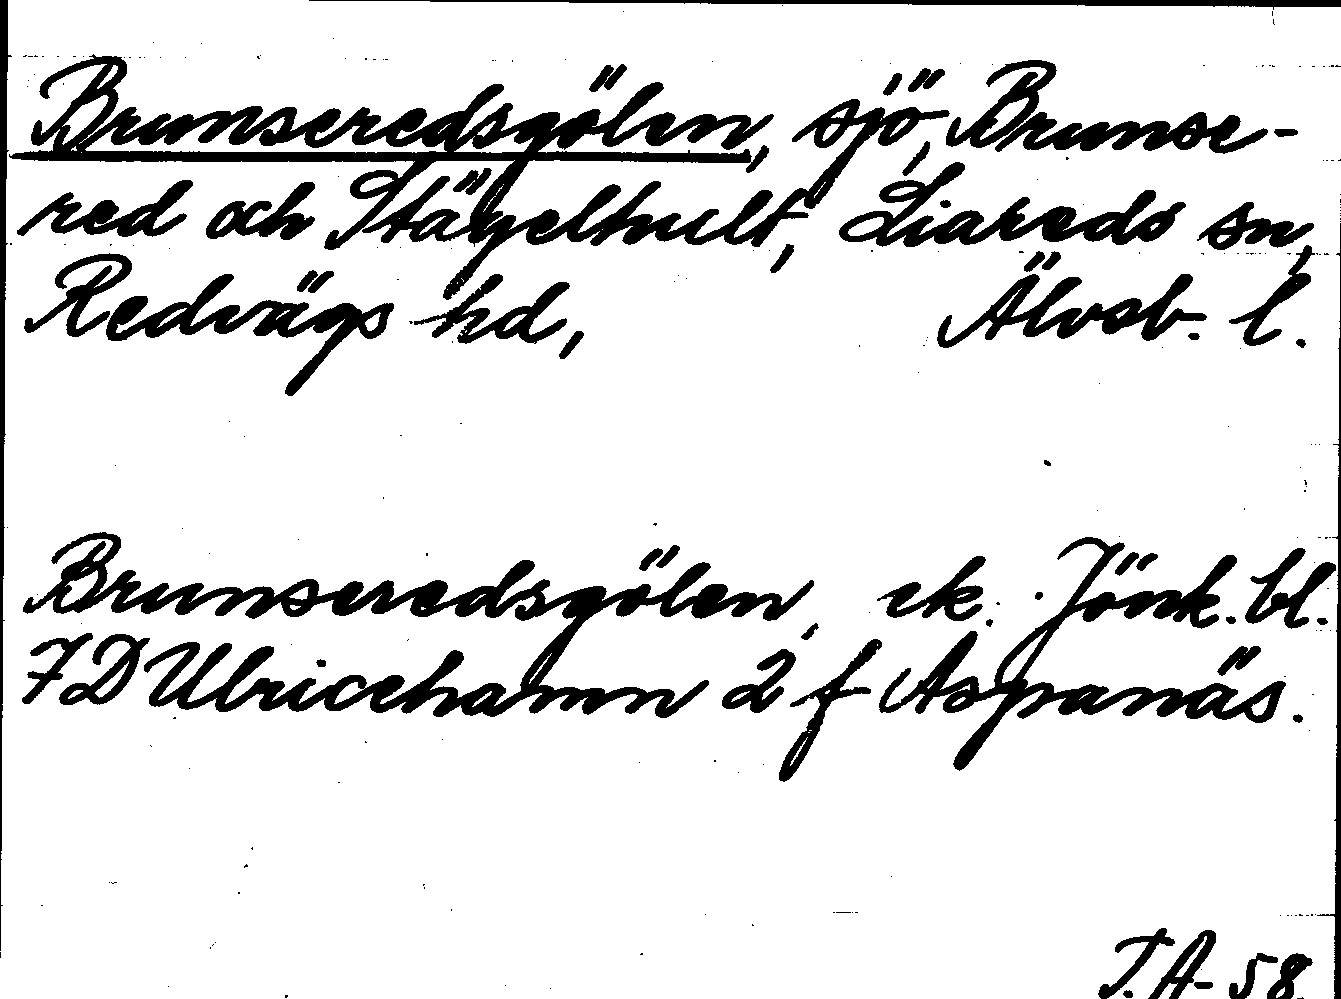 Brunseredsgölen, sjö, Brunse-
red och Stägelhult, Liareds sn,
Redvägs hd, Älvsb. l.
Brunseredsgölen, ek. Jönk. bl.
7D Ulricehamn 2 f Aspanäs.
T.A-58